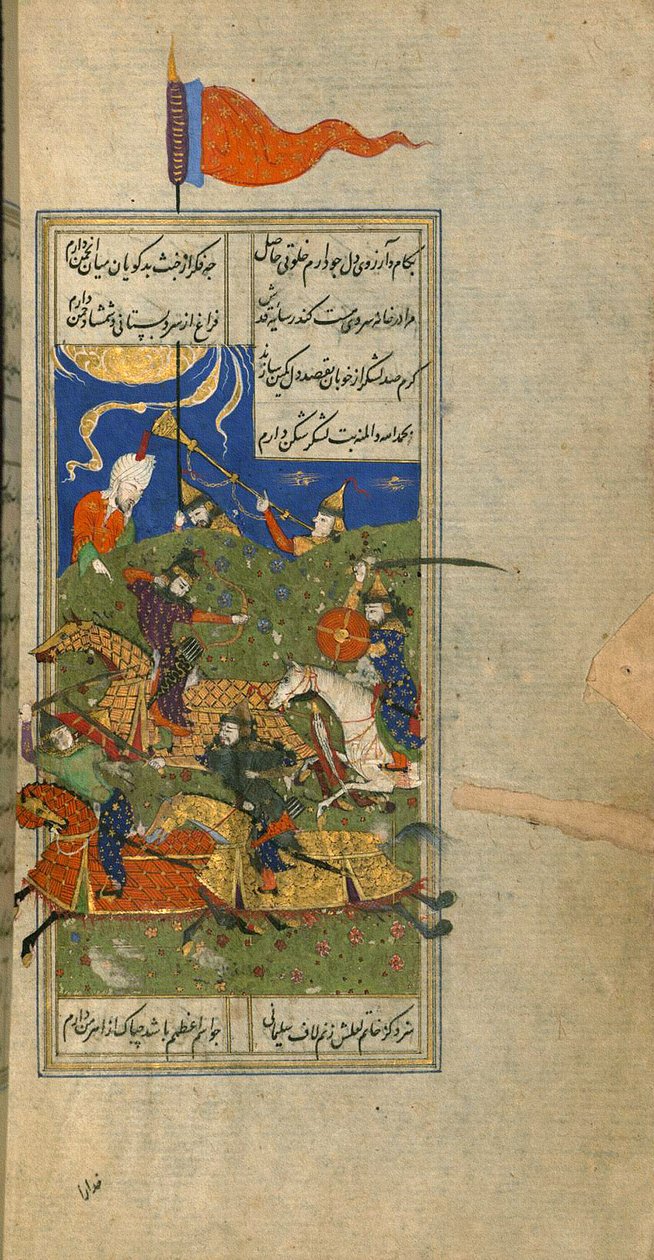 بکام و آرزوی دل چو دارم خلوتی حاصل
چه فکر از خبث بدکویان میان انجمن دارم
مرا در خانه سروی هست کندر سایه قدش
فراغ از سرو بستانی و شمشاد چمن دارم
کرم صد لشکر از خوبان بقصد دل کمین سازند
بحمدالله والمنه بت لشکر شکن دارم
سزد کز خاتم لعلش زنم لاف سلیمانی
چو اسم اعظمم باشد چه باک از اهرمن دارم
خدارا